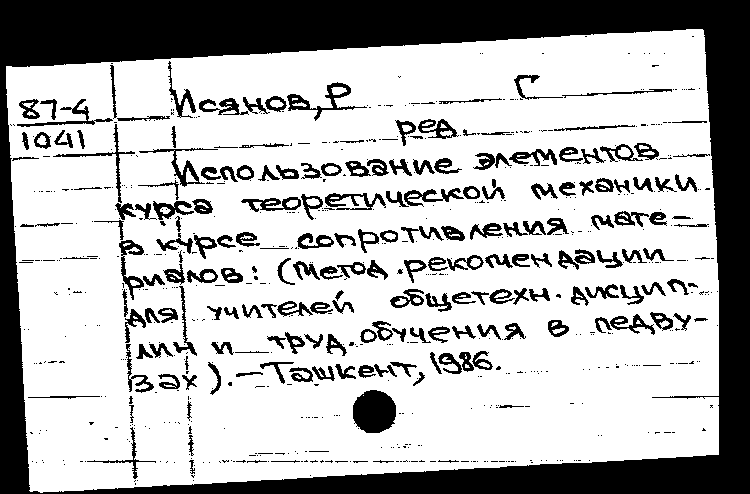 87-4 Исянов, Р Г
1041 ред.
Использование элементов
курса теоретической механики
в курсе сопротивления мате-
риалов: (Метод. рекомендации
для учителей общетехн. дисцип-
лин и труд. обучения в педву-
зах). — Ташкент, 1986.